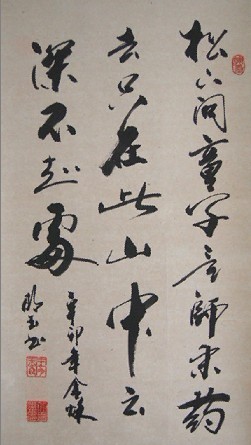 松下问童子言師采药
去只在此山中云
深不知處
辛卯年金秋